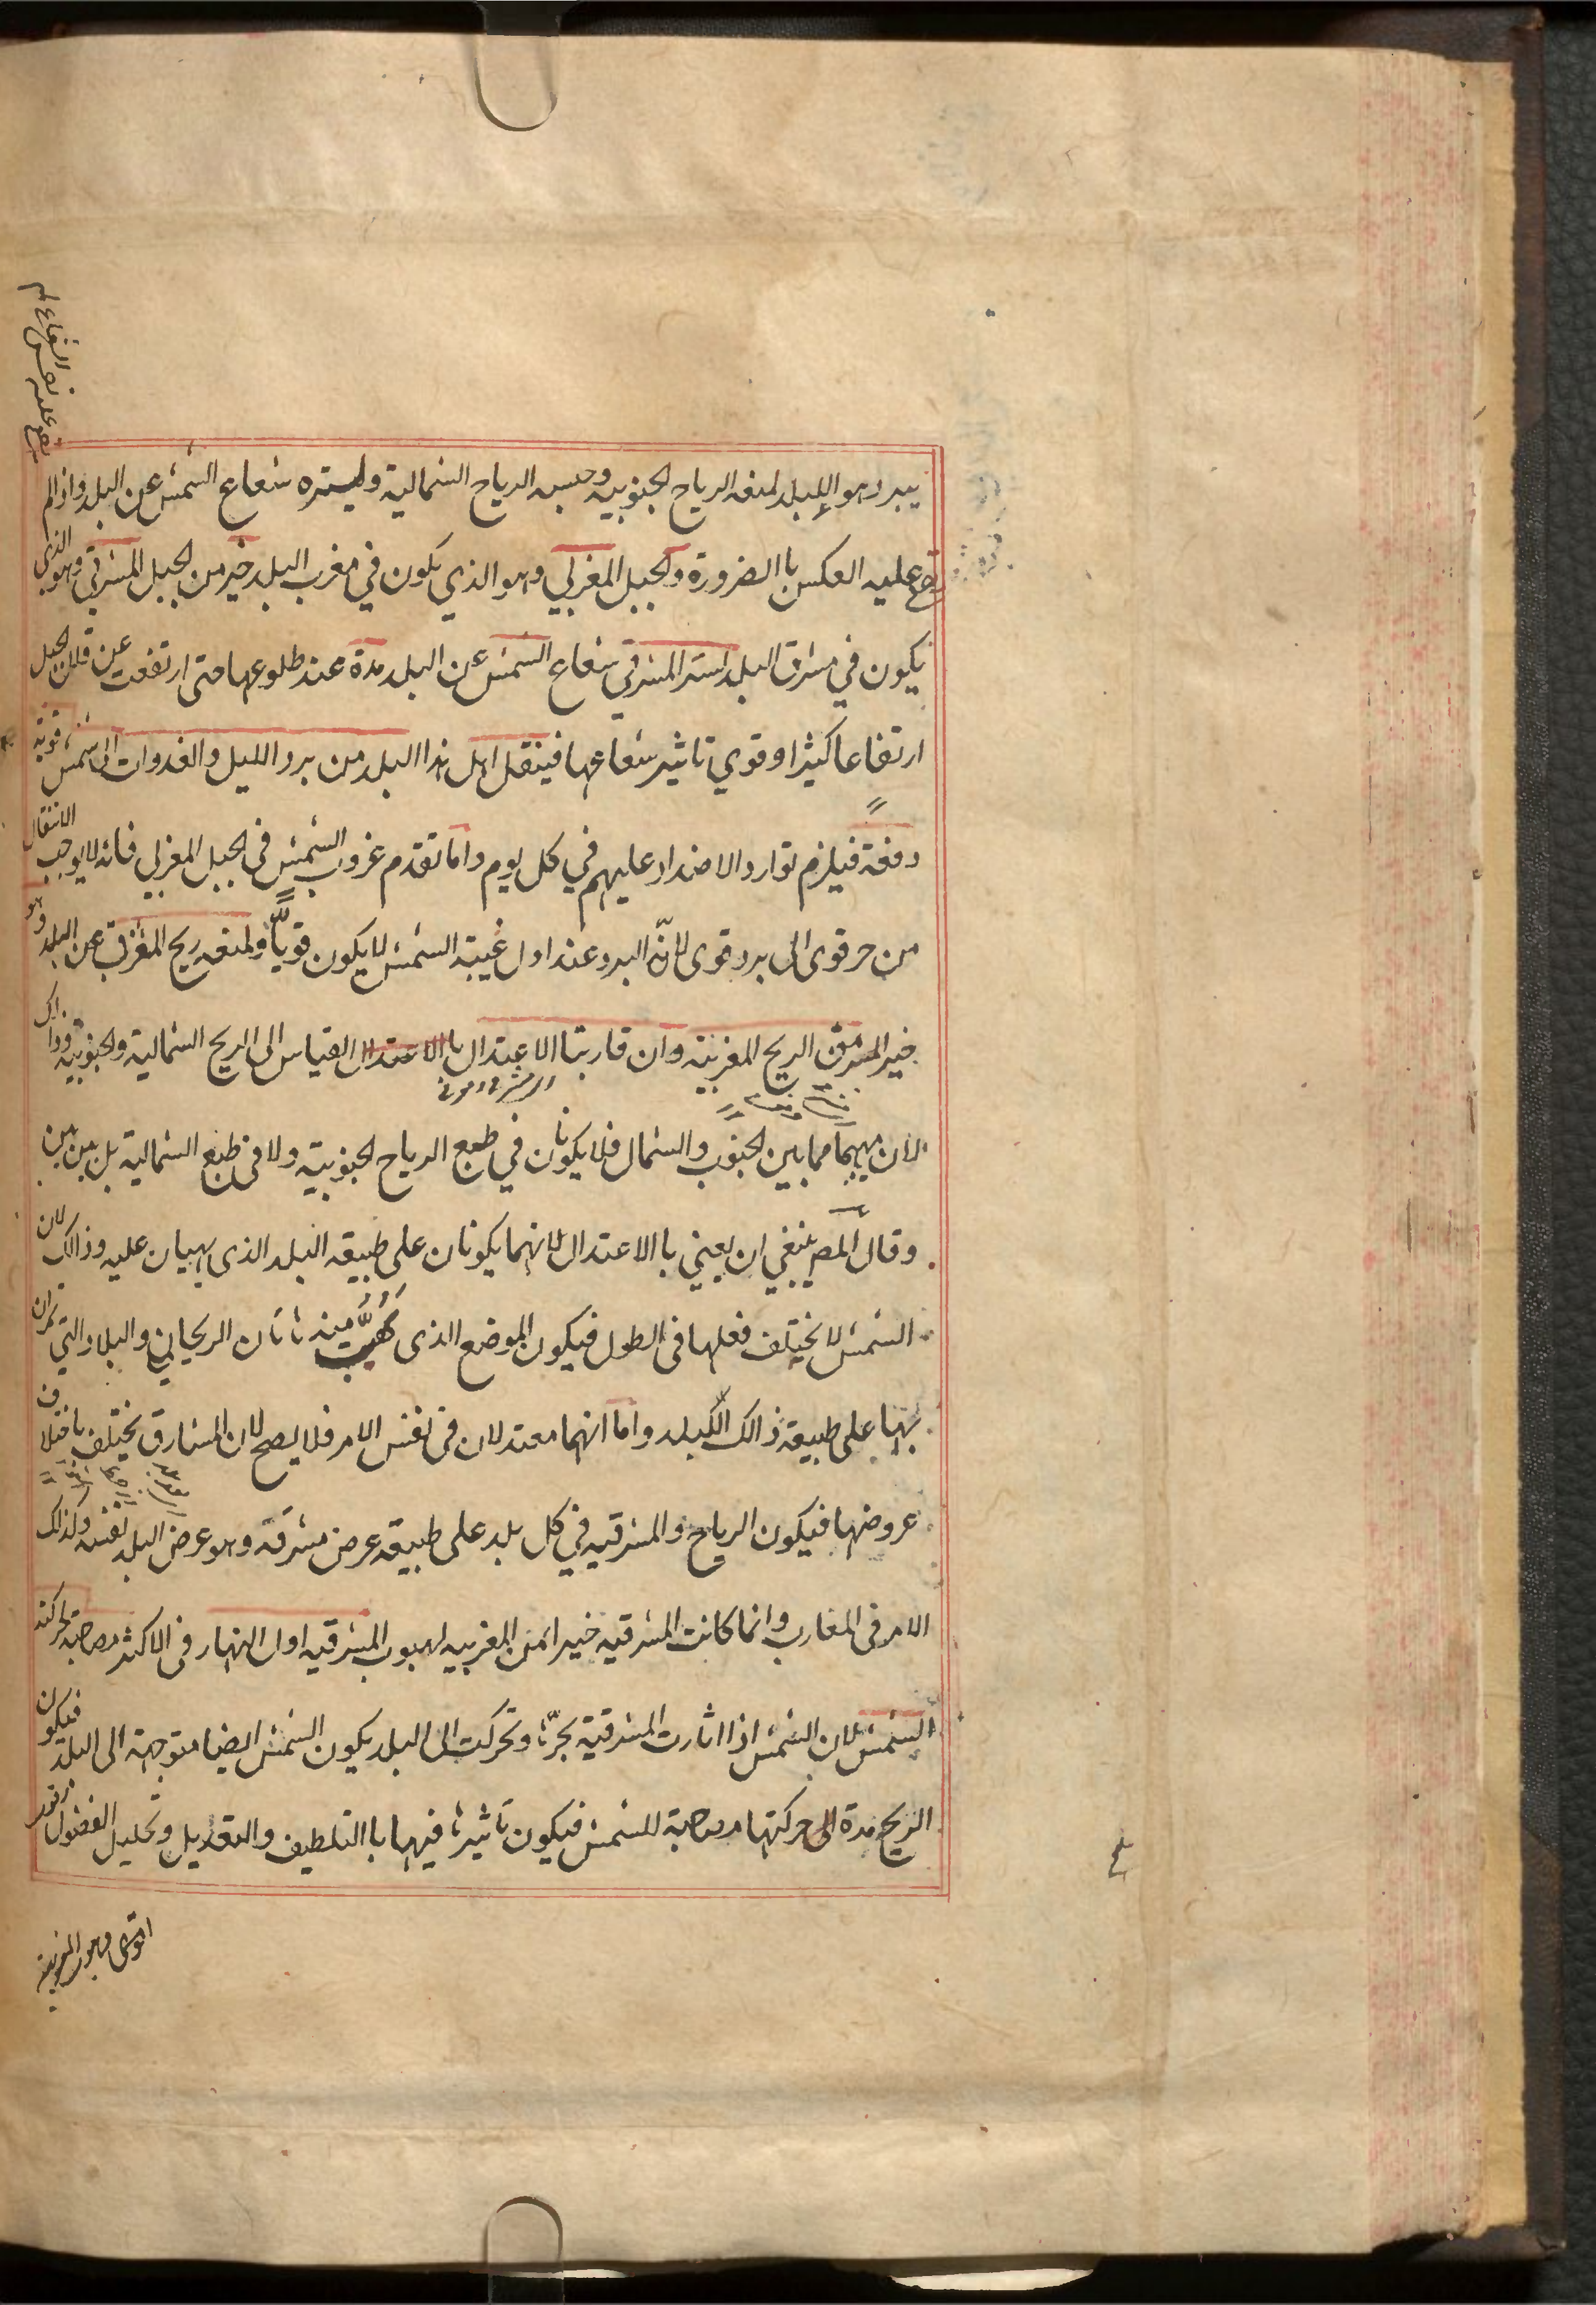 يبرد هو البلد لمنعه الرياح الجنوبيه وحبسه الرياح الشمالية وليستره شعاع الشمس عن البلد واذا لم
يقع عليه العكس باالضرورة والجبل المغربي وهو الذي يكون في مغرب البلد خير من الجبل المشرقي وهو الذي
يكون في مشرق البلد استر المشرقي شعاع الشمس عن البلد مدة عند طلوعها حتى ارتفعت عن قلل الجبل
ارتفاعا كثيرا وقوي تاثير شعاعها فينقل اهل هذا البلد من برد الليل والغدوات الى شمس قوية
دفعة فيلزم توارد الاضداد عليهم في كل يوم واما تقدم غروب الشمس في الجبل المغربي فانه لا يوجب الانتقال
من حر قوى الى برد قوى لانّ البرد عند اول غيبة الشمس لا يكون قويّا ولمنعه ريح المغرب عن البلد وهو
خير المشرق الريح المغربية وان قاربتا الاعتدال باالاعتدال القياس الى الريح الشمالية والجنوبية وذالك
لان مهبهما مما بين الجنوب والشمال فلا يكونان في طبع الرياح الجنوبية ولا في طبع الشمالية بل بين بين
وقال المص ينبغي ان يعني باالاعتدال لانهما يكونان على طبيعة البلد الذى يهبان عليه وذالك لان
الشمس لا يختلف فعلها في الطول فيكون الموضع الذى تهب منه ثاتان الريحان والبلاد التي تمران
بها على طبيعة ذالك البلد واما انهما معتدلان في نفس الامر فلا يصح لان المشارق يختلف باختلاف
عروضها فيكون الرياح والمشرقيه في كل بلد على طبيعة عرض مشرقه وهو عرض البلد نفسه وكذالك
الامر في المغارب وانما كانت المشرقيه خيرا من المغربيه لهبوب المشرقيه اول النهار في الاكثر مصاحبة لحركة
الشمس لان الشمس اذا اثارت المشرقية بحرّها وتحركت الى البلد يكون الشمس ايضا متوجهة الى البلد فيكون
الريح مدة الى حركتها مصاحبة للشمس فيكون تاثيرها فيها باالتلطيف والتعديل وتحليل الفضول
اقوى وهبوب المغربية